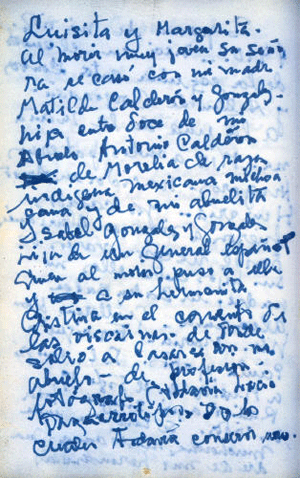 Luisita y Margarita.
Al morir muy joven su seño
ra se casó con mi madre
Matilde Calderón y Gonzalez
hija entre doce de mi
Abuelo Antonio Calderón
de Morelia de raza
indigena mexicana michoa
cana y de mi abuelita
Isabel Gonzalez y Gonzalez
hija de un general español
quien al morir puso a ella
y a su hermanita
Cristina en el convento de
las viscaínas. de donde
salió a casarse con mi
abuelo - de profesión
fotógrafo
daguerrotipos
cuales todavía conservo uno.